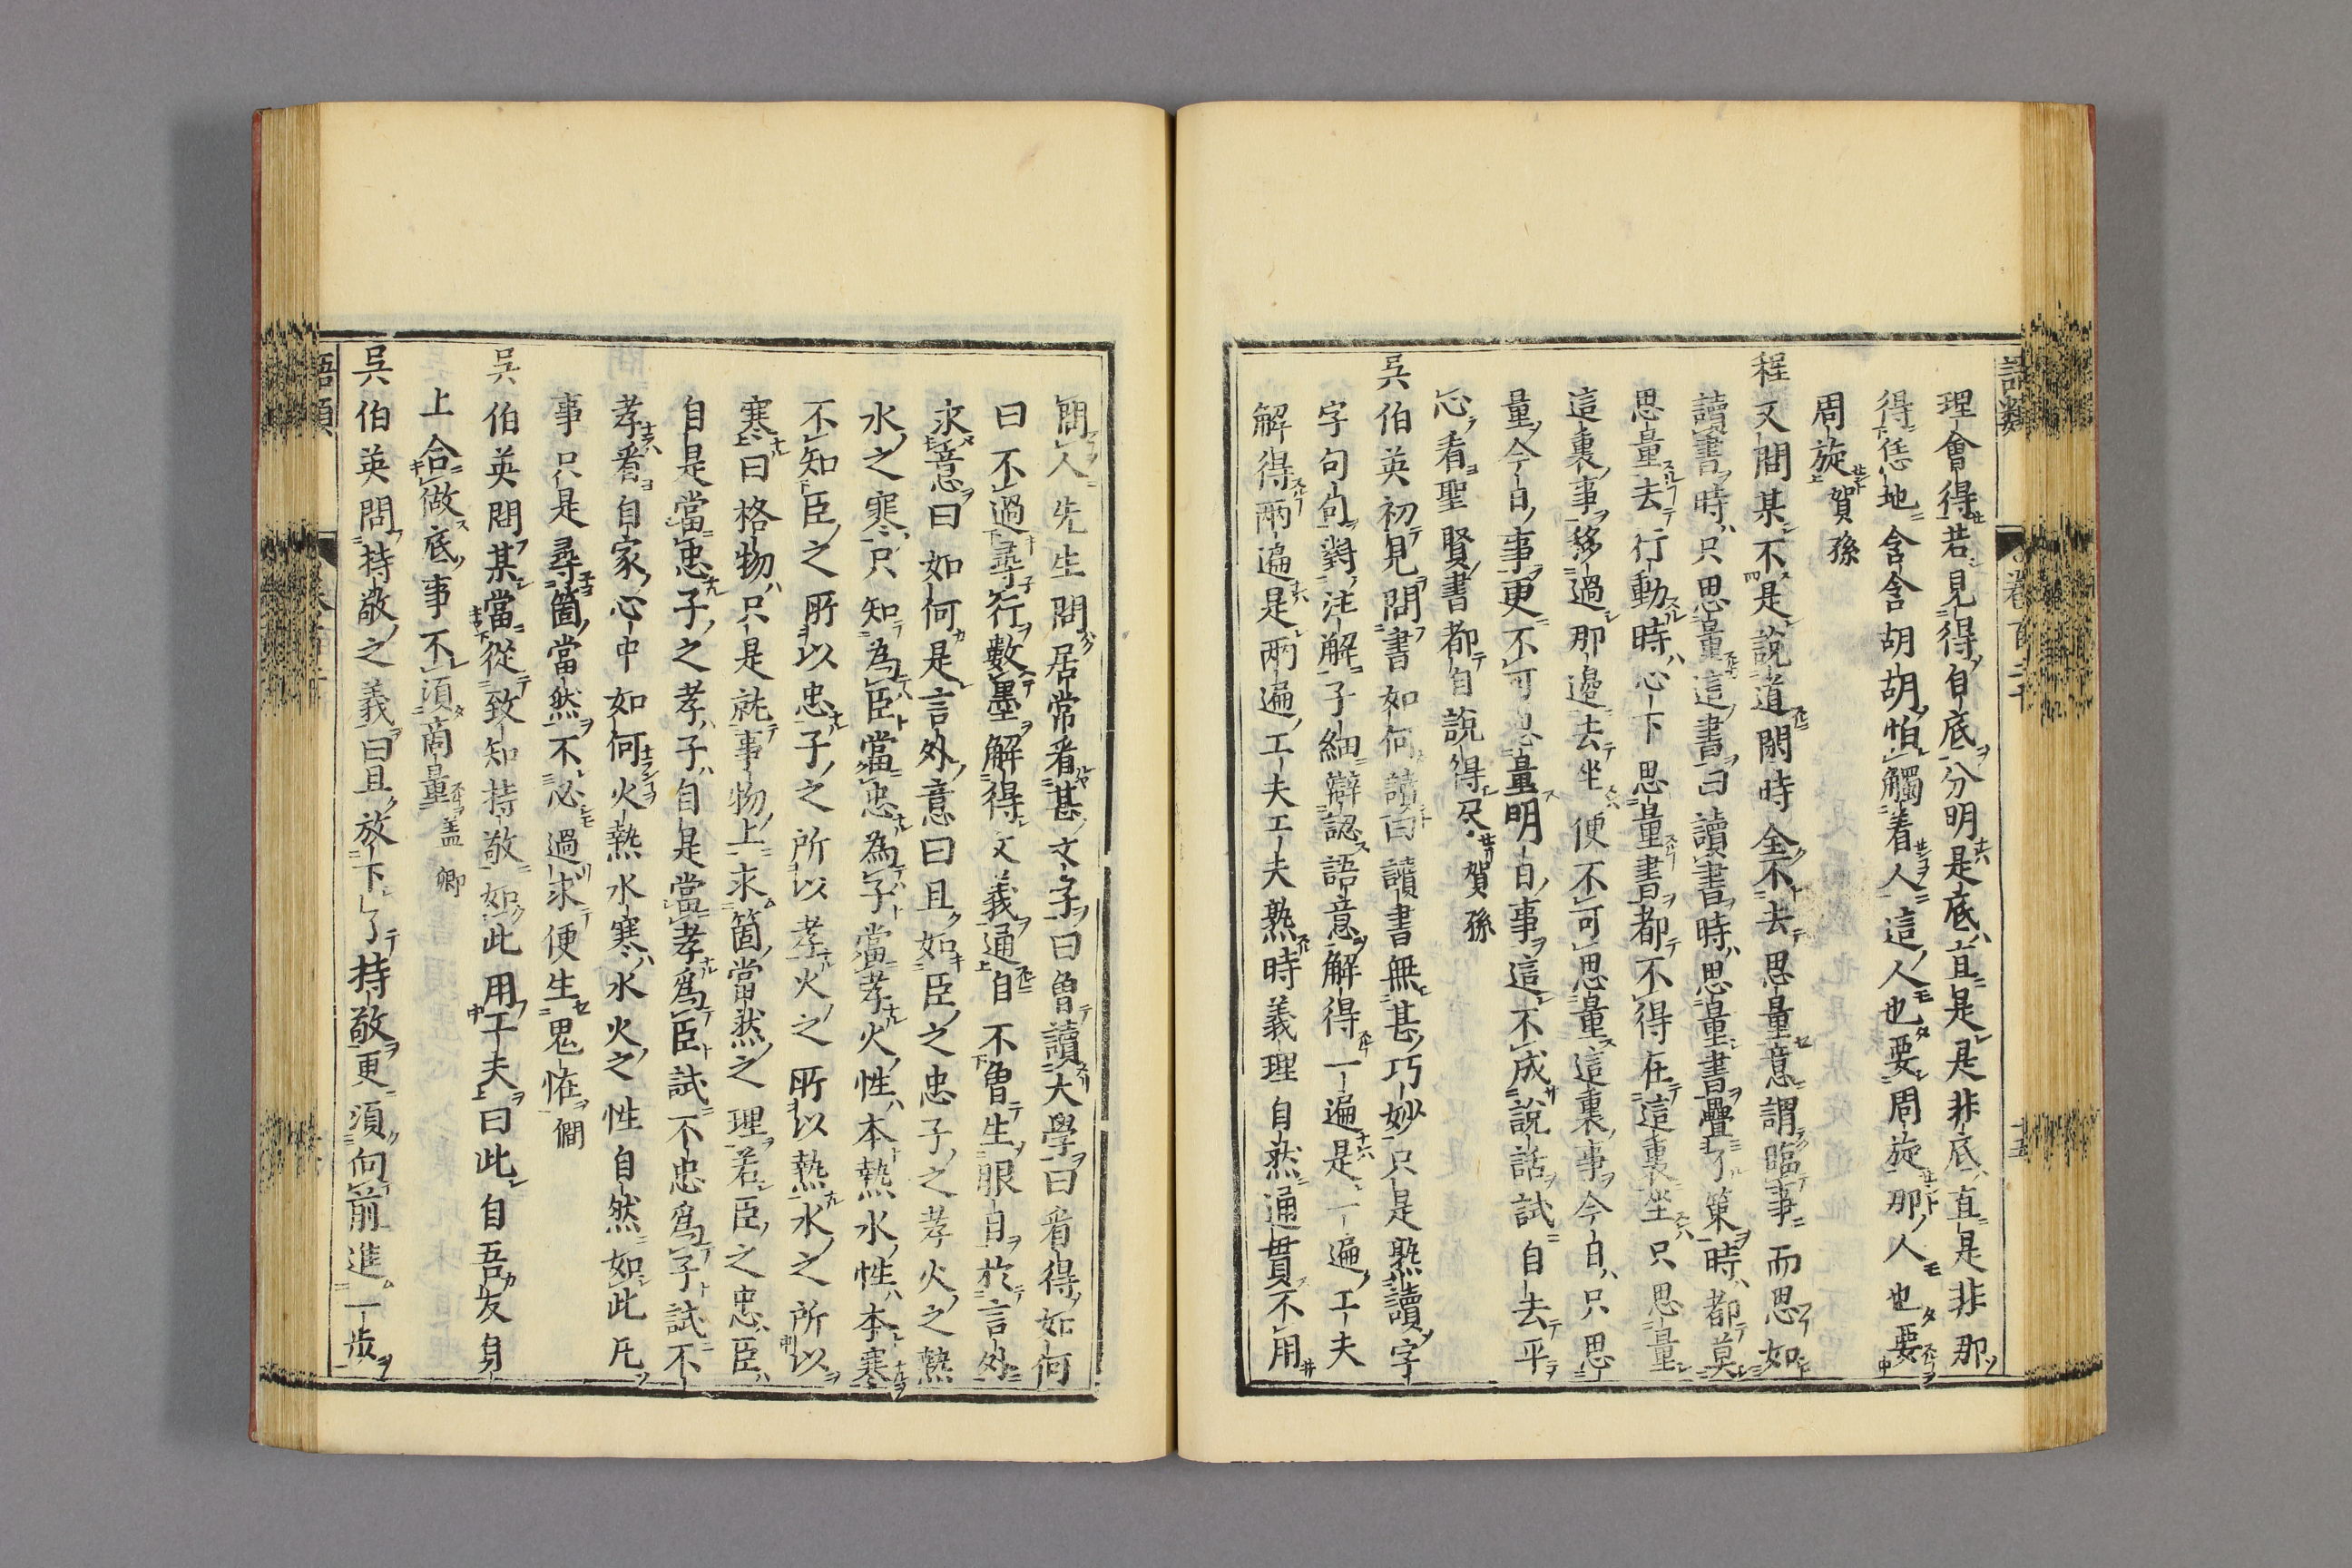 理會得若見得自底分明是底直是是非底直是非那
得恁地含含胡胡怕觸着人這人也要周旋那人也要
周旋賀孫
程又問某不是說道閑時全不去思量意謂臨事而思如
讀書時只思量這書曰讀書時思量書疊了策時都莫
思量去行動時心下思量書都不得在這裏坐只思量
這裏事移過那邊去坐便不可思量這裏事今日只思
量今日事更不可思量明日事這不成說話試自去平
心看聖賢書都自說得尽賀孫
吳伯英初見問書如何讀曰讀書無甚巧妙只是熟讀字
字句句對注解子細辯認語意解得一遍是一遍工夫
解得兩遍是兩遍工夫工夫熟時義理自然通貫不用
問人先生問居常看甚文字曰曾讀大學曰看得如何
曰不過尋行數墨解得文義通自不曾生眼目於言外
求意曰如何是言外意曰且如臣之忠子之孝火之熱
水之寒只知為臣當忠為子當孝火性本熱水性本寒
不知臣之所以忠子之所以孝火之所以熱水之所以
寒曰格物只是就事物上求箇當然之理若臣之忠臣
自是當忠子之孝子自是當孝爲臣試不忠爲子試不
孝看自家心中如何火熱水寒水火之性自然如此凡
事只是尋箇當然不必過求便生鬼怪僩
吳伯英問某當從致知持敬如此用工夫曰此自吾友身
上合做底事不須商量盖卿
吳伯英問持敬之義曰且放下了持敬更須向前進一步